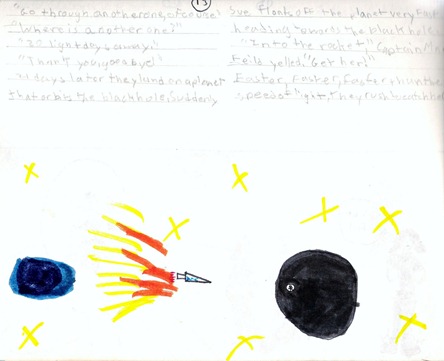 13
"Go through another one, of course"
"Where is another one?"
"20 light days away."
"Thank you, goodbye!"
days later they land on a planet
that orbits the black hole. Suddenly
Sue floats off the planet very fast
heading towards the black hole.
"Into the rocket", Captain
yelled. "Get her!"
Faster, faster, faster than the
speed of light, they rush